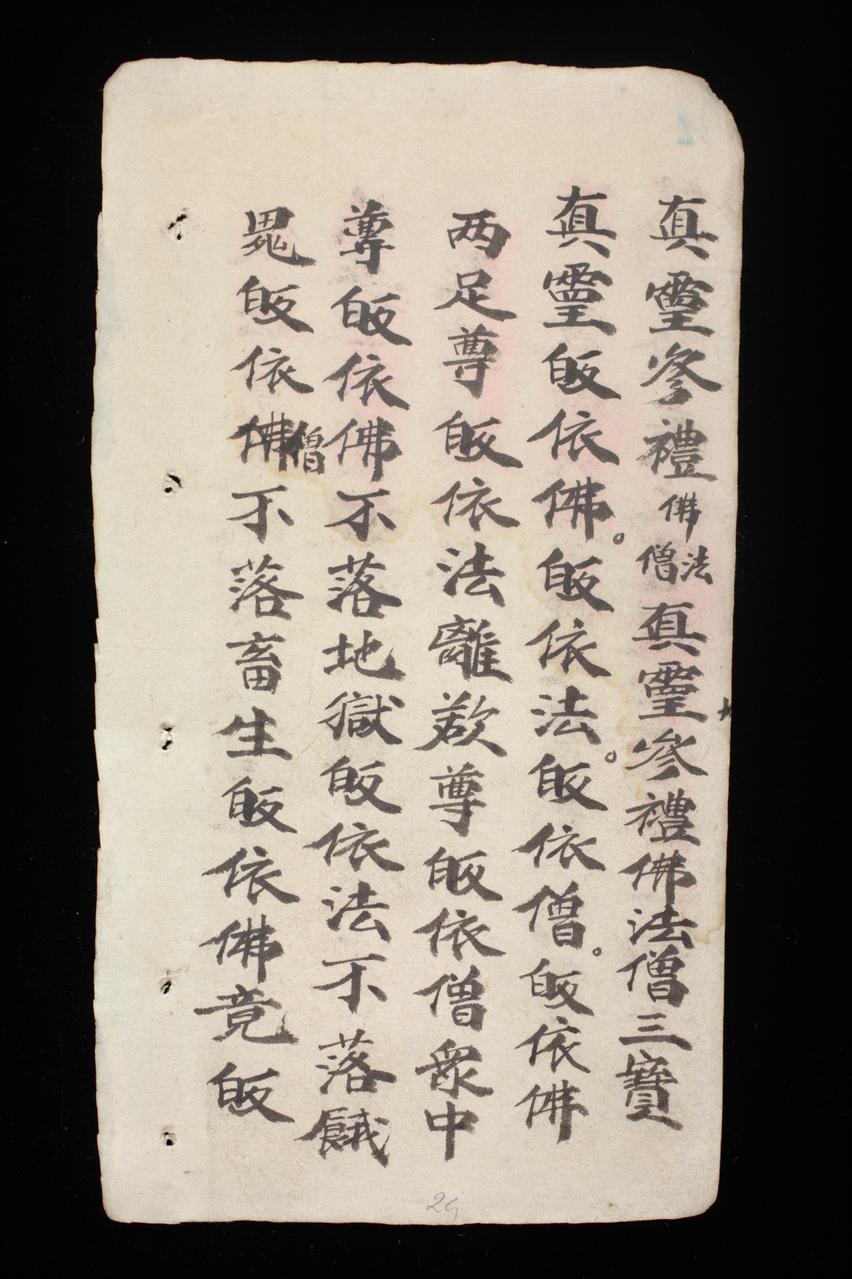 真靈參禮佛法僧真靈參禮佛法僧三寶
真靈皈依佛。皈依法。皈依僧。皈依佛
两足尊皈依法離欲尊皈依僧衆中
尊皈依佛不落地獄皈依法不落餓
鬼皈依佛僧不落畜生皈依佛竟皈